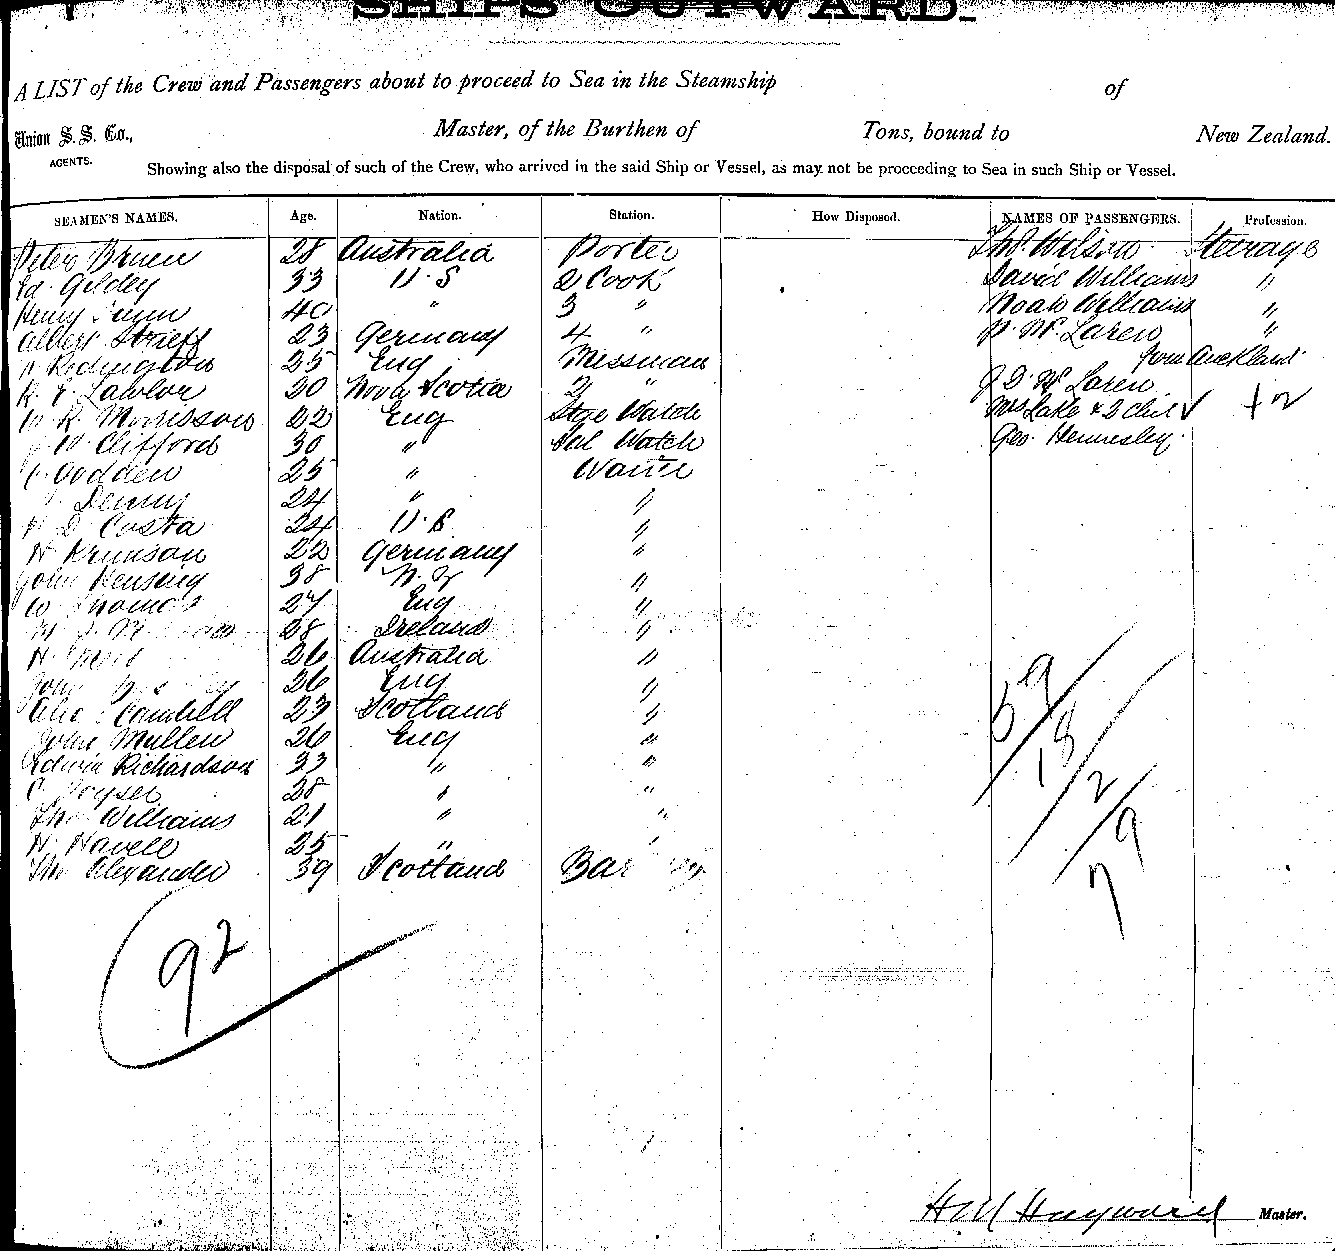 SHIPS OUTWARD.
A LIST of the Crew and Passengers about to proceed to Sea in the Steamship of
Union S. S. Co., Master, of the Burthen of Tons, bound to New Zealand.
AGENTS.
Showing also the disposal of such of the Crew, who arrived in the said Ship or Vessel, as may not be proceeding to Sea in such Ship or Vessel.
SEAMEN'S NAMES. Age. Nation. Station. How Disposed. NAMES OF PASSENGERS. Profession.
Peter Bruen 28 Australia Porter Thos Wilson Steerage
Ed. Gildey 33 U. S 2 Cook David Williams "
Henry 40 " 3 " Noah Williams "
Albert Strieff 23 Germany 4 " Laren "
Redington 25 Eng Messman from Auckland
R. E. Lawlor 20 Nova Scotia 2 " J D Mc Laren
W R. Morrisson 22 Eng Stge Watch Mrs Lake & 2 chil ✓ + 2
W Clifford 30 " Sal Watch Geo. Hennesley
Godden 25 " Waiter
Denny 24 " "
D Costa 24 U. S "
H Krunson 22 Germany "
John Kensing 38 N. Z "
W Thomas 27 Eng "
28 Ireland "
H. 26 Australia "
John 26 Eng "
Alex Cambell 23 Scotland "
John Mullen 26 Eng "
Edwin Richardson 33 " "
C 28 " "
Tho Williams 21 " "
H. Havell 25 " "
Tho Alexander 39 Scotland
59
18
2
79
92
Hayward Master.